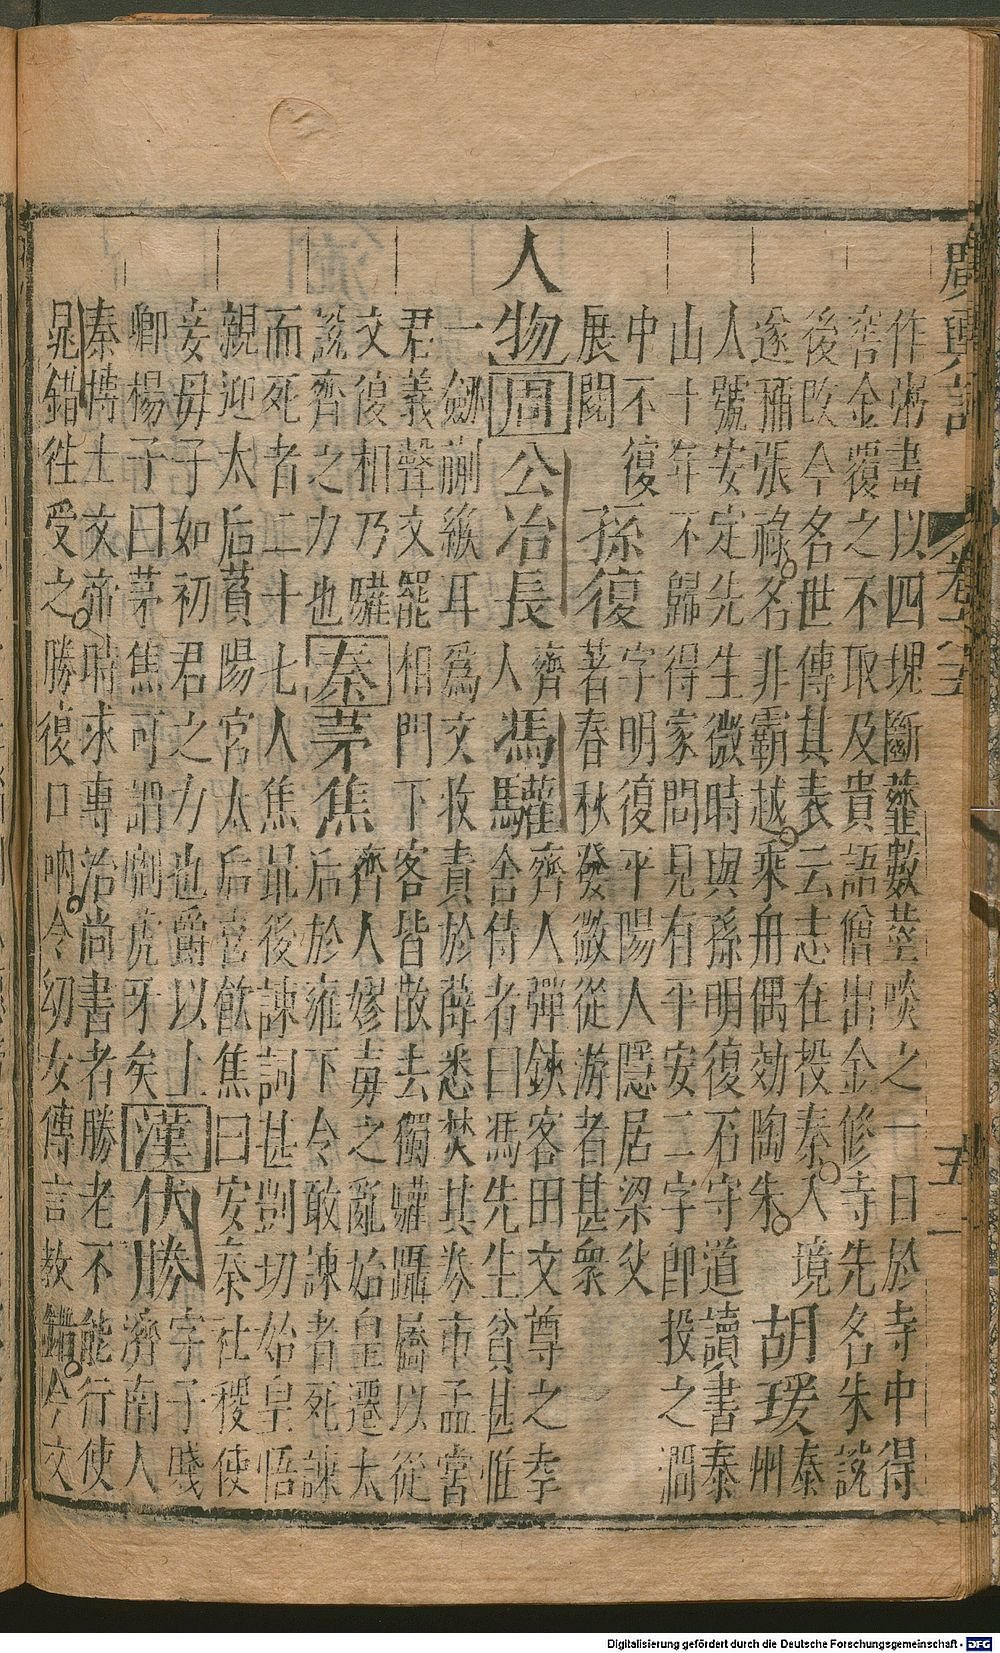 廣輿記
卷六
五
作粥畫以四塊斷虀數莖啖之一日於寺中得
窖金覆之不取及貴語僧出金修寺先名朱說
後改今名世傳其表云志在投秦入境
遂稱張祿名非霸越乘舟偶効陶朱
胡瑗
泰
州
人號安定先生微時與孫明復石守道讀書泰
山十年不歸得家問見有平安二字卽投之澗
中不復
展閱
孫復
字明復平陽人隱居梁父
著春秋發微從游者甚衆
人物 周 公冶長
齊
人
馮驩
齊人彈鋏客田文尊之幸
舍侍者曰馮先生貧甚惟
一劍蒯緱耳爲文收責於薛悉焚其券市孟嘗
君義聲文罷相門下客皆散去獨驩躡屩以從
文復相乃驩
說齊之力也
秦 茅焦
齊人嫪毐之亂始皇遷太
后於雍下令敢諫者死諫
而死者二十七人焦最後諫詞甚剴切始皇悟
親迎太后萯陽宮太后喜飲焦曰安秦社稷使
妾母子如初君之力也爵以上
卿楊子曰茅焦可謂劘虎牙矣
漢 伏勝
字子賤
濟南人
秦博士文帝時求專治尚書者勝老不能行使
晁錯徃受之勝復口吶令幼女傳言教錯今文
Digitalisierung gefördert durch die Deutsche Forschungsgemeinschaft - DFG